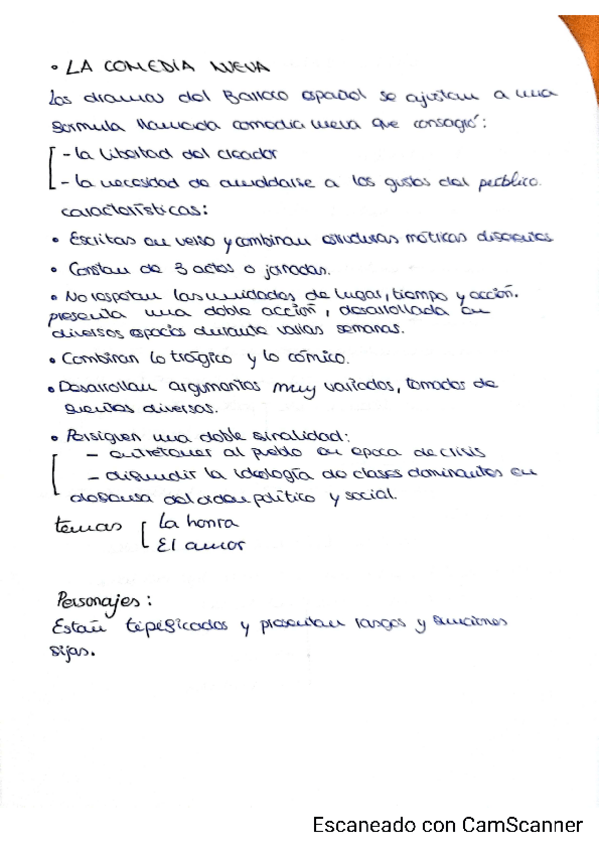 • LA COMEDIA NUEVA
Los dramas del Barroco español se ajustan a una
formula llamada comedia nueva que consagró:
- la libertad del creador
- la necesidad de amoldarse a los gustos del público.
características:
• Escritas en verso y combinan estructuras métricas diferentes
• Constan de 3 actos o jornadas.
• No respetan las unidades de lugar, tiempo y acción.
presenta una doble acción, desarrollada en
diversos espacios durante varias semanas.
• Combinan lo trágico y lo cómico.
• Desarrollan argumentos muy variados, tomados de
fuentes diversas.
• Persiguen una doble finalidad:
- entretener al pueblo en epoca de crisis
- difundir la ideología de clases dominantes en
defensa del orden político y social.
temas [ La honra
El amor
Personajes:
Están tipificados y presentan rasgos y funciones
fijas.
Escaneado con CamScanner